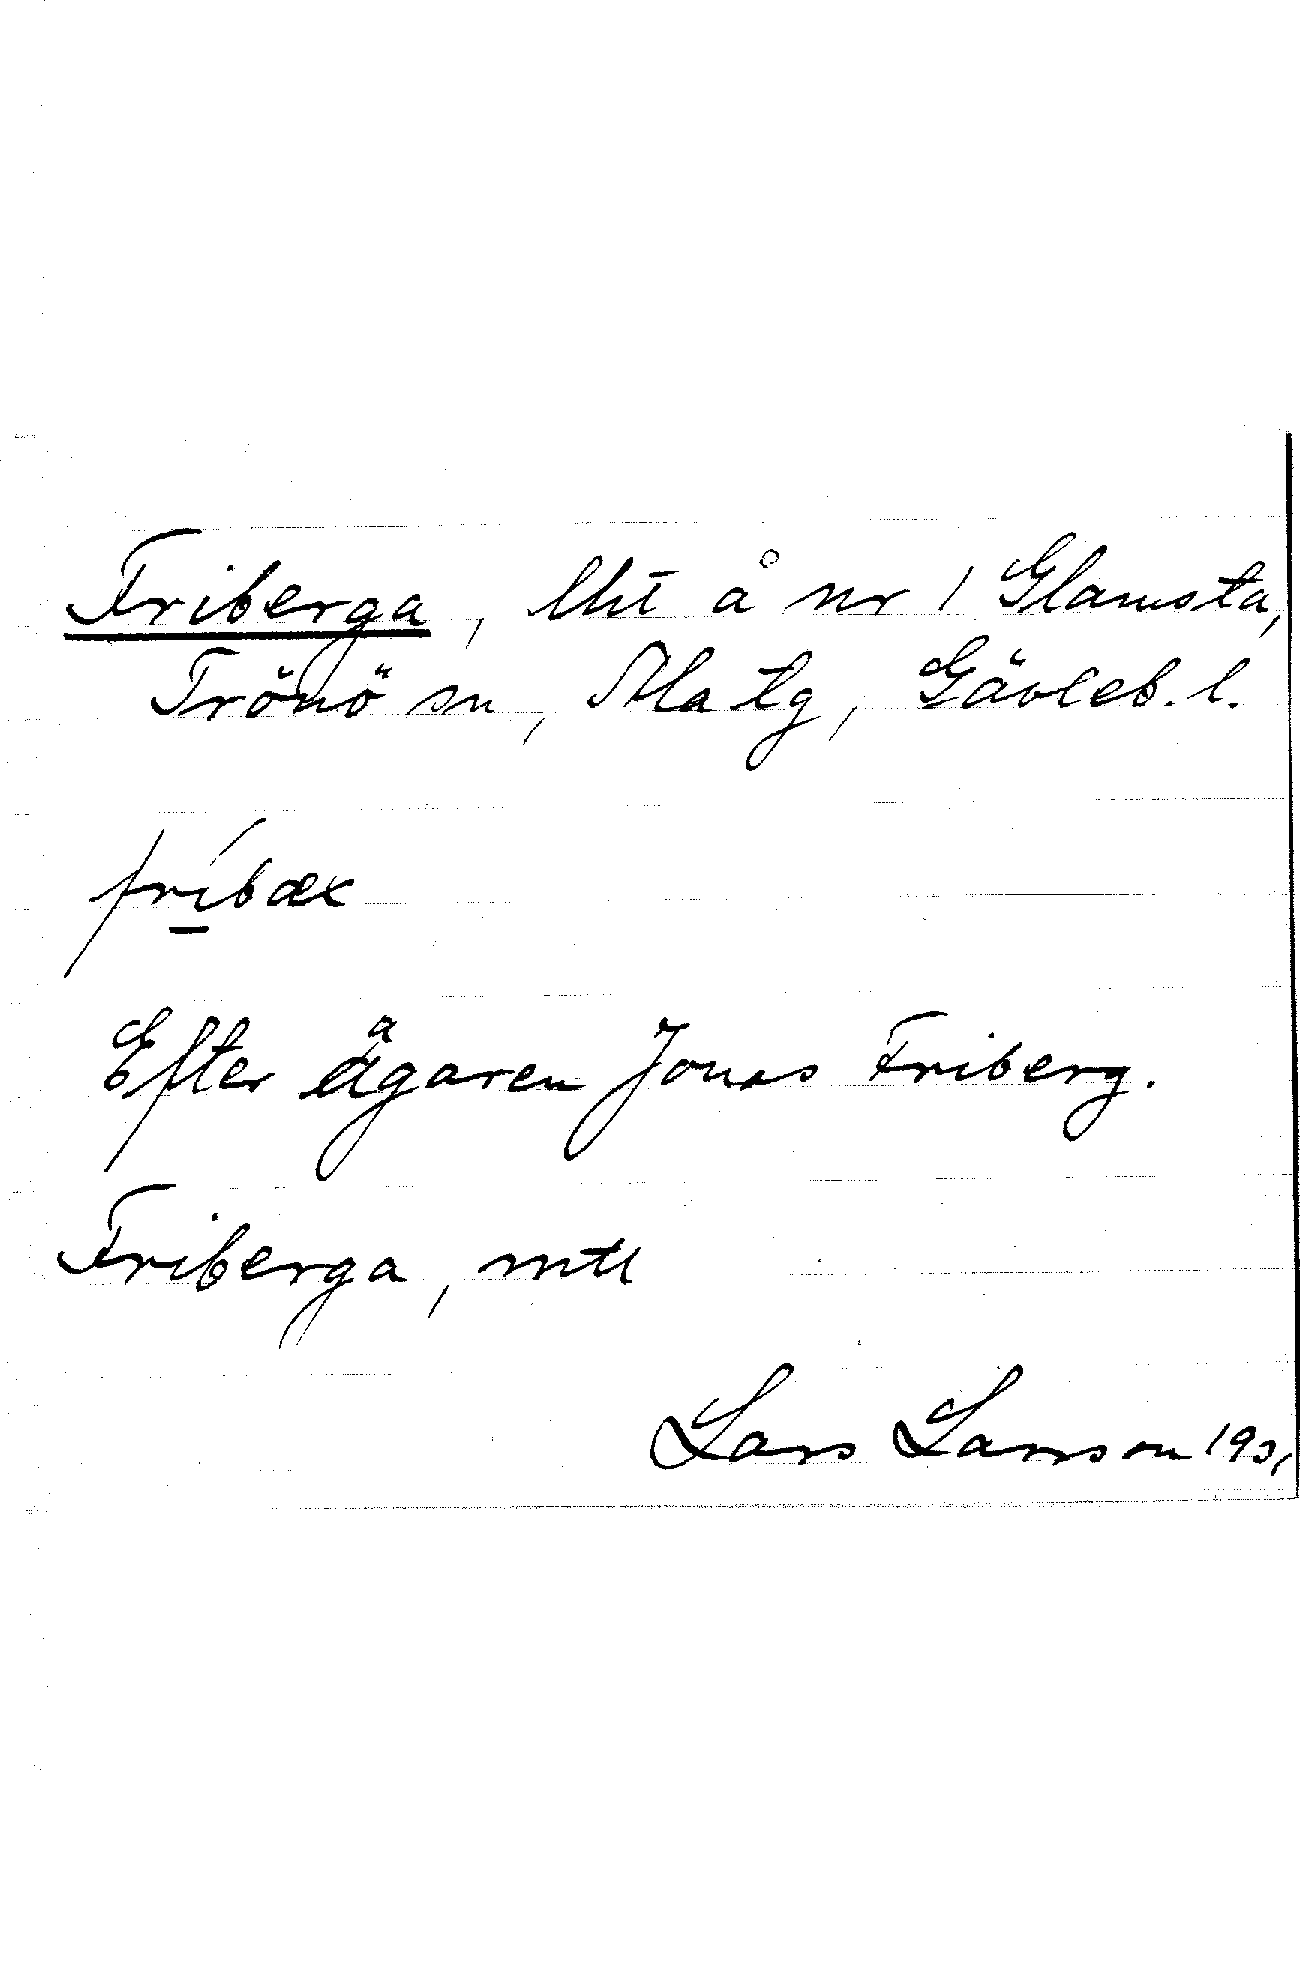 Friberga, lht å nr 1 Glamsta,
Trönö sn, Ala tg, Gävleb. l.
fribæx
Efter ägaren Jonas Friberg.
Friberga, mtl
Lars Larsson 1931